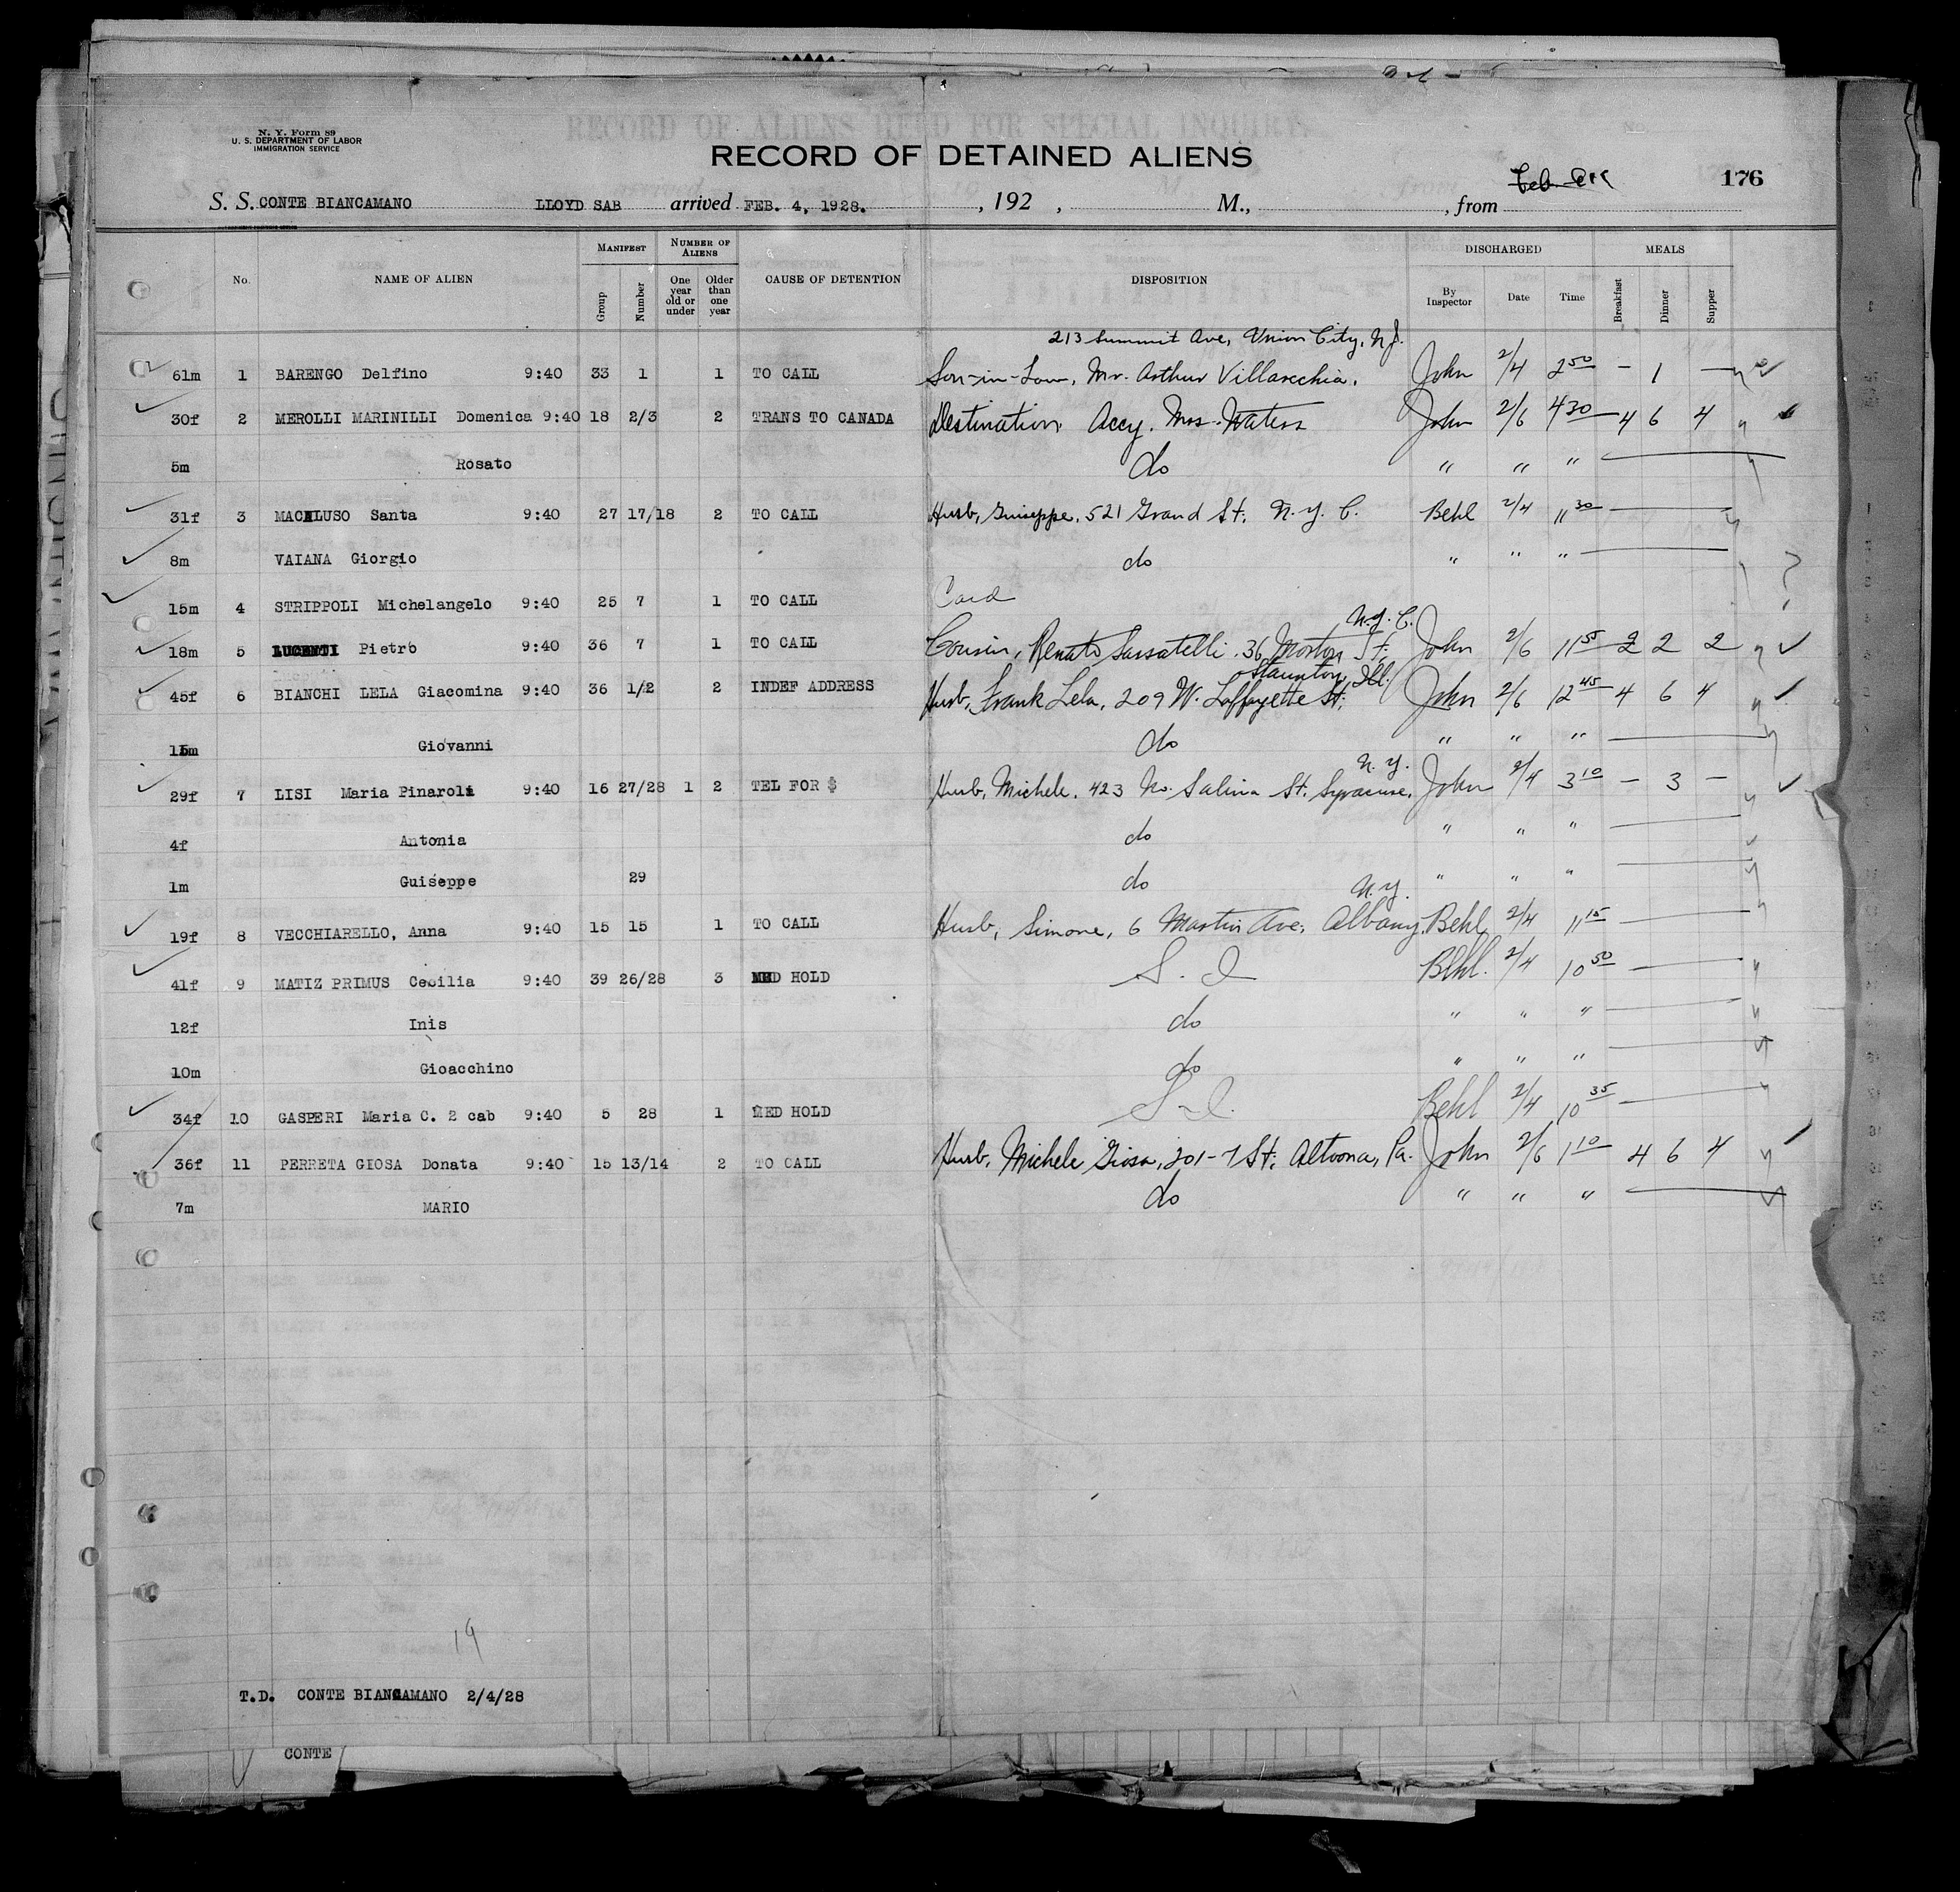 N. Y. Form 89
U. S. DEPARTMENT OF LABOR
IMMIGRATION SERVICE
RECORD OF DETAINED ALIENS
176
S. S. CONTE BIANCAMANO LLOYD SAB arrived FEB. 4, 1928. , 192 , M., , from
No. NAME OF ALIEN MANIFEST Group Number NUMBER OF ALIENS One year old or under Older than one year CAUSE OF DETENTION DISPOSITION DISCHARGED By Inspector Date Time MEALS Breakfast Dinner Supper
213 Summit Ave, Union City, N.J.
61m 1 BARENGO Delfino 9:40 33 1 1 TO CALL Son-in-Law, Mr. Arthur Villavecchia. John 2/4 2 50 – 1 –
30f 2 MEROLLI MARINILLI Domenica 9:40 18 2/3 2 TRANS TO CANADA Destination Accy. Mrs. Waters John 2/6 4 30 4 6 4
5m Rosato do " " "
31f 3 MACALUSO Santa 9:40 27 17/18 2 TO CALL Husb, Guiseppe, 521 Grand St. N.Y.C. Behl 2/4 11 30
8m VAIANA Giorgio do " " "
15m 4 STRIPPOLI Michelangelo 9:40 25 7 1 TO CALL Card ?
N.Y.C.
18m 5 Pietro 9:40 36 7 1 TO CALL Cousin, Renato Sassatelli. 36 Morton St, John 2/6 11 55 2 2 2
Staunton, Ill.
45f 6 BIANCHI LELA Giacomina 9:40 36 1/2 2 INDEF ADDRESS Husb, Frank Lela, 209 W. Laffayette St, John 2/6 12 45 4 6 4
Giovanni do " " "
N.Y.
29f 7 LISI Maria Pinaroli 9:40 16 27/28 1 2 TEL FOR $ Husb, Michele, 423 No. Salina St. Syracuse, John 2/4 3 10 – 3 –
4f Antonia do " " "
1m Guiseppe 29 do " " "
N.Y.
19f 8 VECCHIARELLO, Anna 9:40 15 15 1 TO CALL Husb, Simone, 6 Martin Ave, Albany, Behl 2/4 11 15
41f 9 MATIZ PRIMUS Cecilia 9:40 39 26/28 3 MED HOLD S. I Behl. 2/4 10 50
12f Inis do " " "
10m Gioacchino do " " "
34f 10 GASPERI Maria C. 2 cab 9:40 5 28 1 MED HOLD S-I. Behl 2/4 10 35
36f 11 PERRETA GIOSA Donata 9:40 15 13/14 2 TO CALL Husb, Michele Giosa, 201-7 St, Altoona, Pa. John 2/6 1 10 4 6 4
7m MARIO do " " "
19
T.D. CONTE BIANCAMANO 2/4/28
CONTE